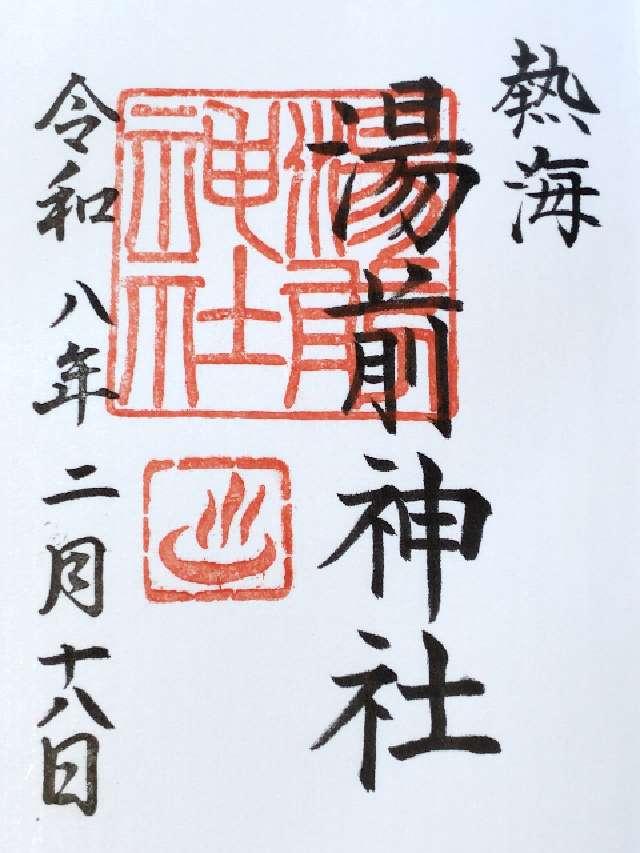 熱海
湯前神社
湯前神社
令和八年二月十八日